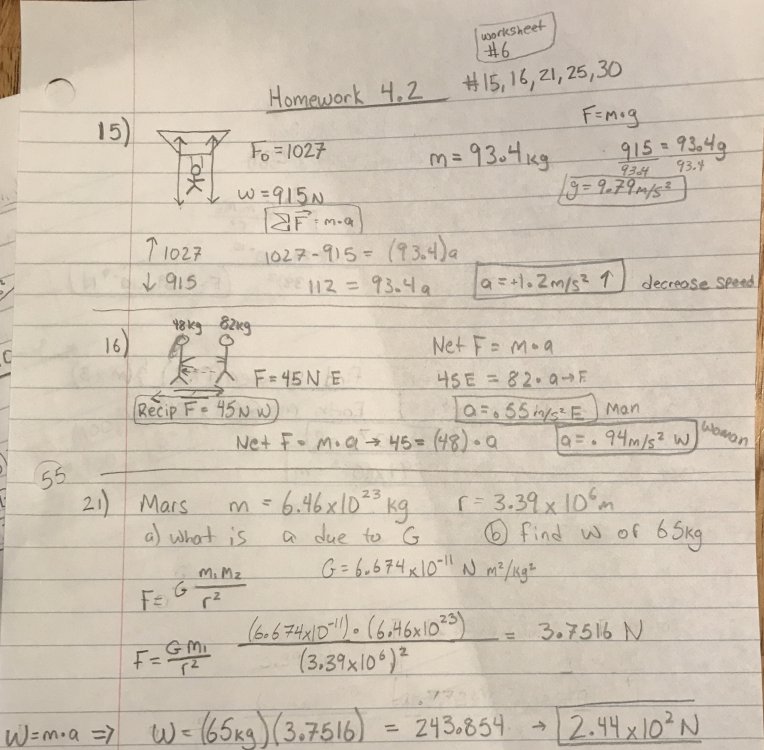 worksheet
#6
Homework 4.2 #15, 16, 21, 25, 30
15) F₀ = 1027 m = 93.4 kg F = m•g
W = 915 N 915/93.4 = 93.4g/93.4
g = 9.79 m/s²
ΣF⃗ = m•a
↑ 1027 1027 - 915 = (93.4)a
↓ 915 112 = 93.4a a = +1.2 m/s² ↑ decrease speed
48kg 82kg
16) Net F = m•a
F = 45 N E 45 E = 82•a → E
Recip F = 45 N W a = .55 m/s² E Man
Net F = m•a → 45 = (48)•a a = .94 m/s² W Woman
55
21) Mars m = 6.46 x 10²³ kg r = 3.39 x 10⁶ m
a) what is a due to G b) find w of 65kg
F = G m₁m₂/r² G = 6.674 x 10⁻¹¹ N m²/kg²
F = Gm₁/r² (6.674x10⁻¹¹)•(6.46x10²³)/(3.39x10⁶)² = 3.7516 N
W = m•a ⇒ W = (65kg)(3.7516) = 243.854 → 2.44 x 10² N